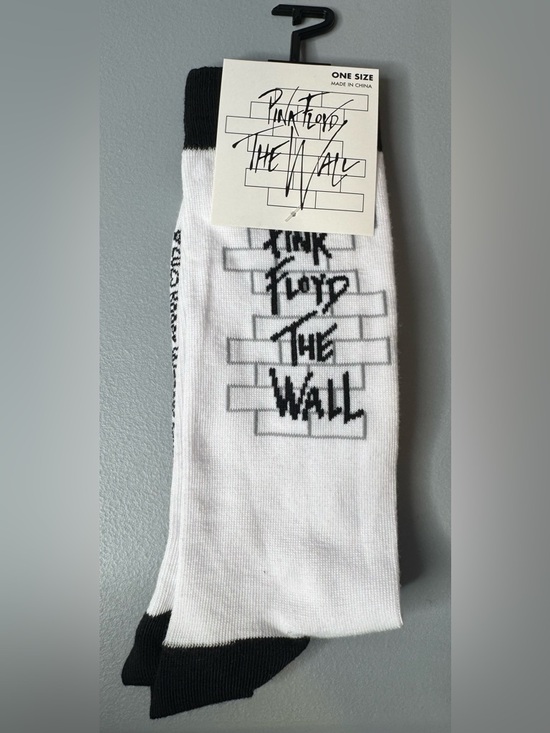 ONE SIZE
MADE IN CHINA
PINK FLOYD
THE WALL
PINK
FLOYD
THE
WALL